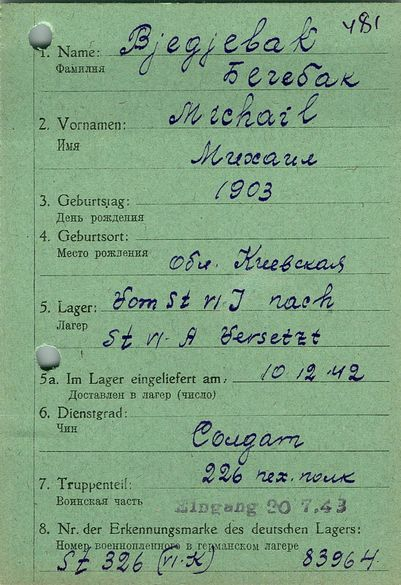 481
1. Name: Bjedjebak
Фамилия Бегебак
2. Vornamen: Michail
Имя Михаил
3. Geburtstag: 1903
День рождения
4. Geburtsort:
Место рождения Обл. Киевская
5. Lager: Vom St VI. J nach
Лагер St VI. A Versetzt
5a. Im Lager eingeliefert am: 10.12.42
Доставлен в лагер (число)
6. Dienstgrad:
Чин Солдат
7. Truppenteil: 226 пех. полк
Воинская часть Eingang 20 7.43
8. Nr. der Erkennungsmarke des deutschen Lagers:
Номер военнопленного в германском лагере
St 326 (VI-K) 83964